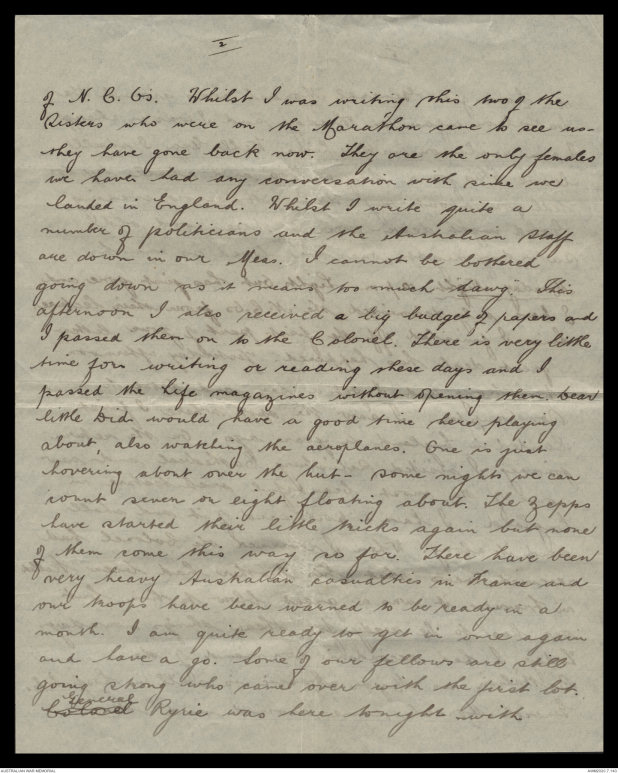 2
of N. C. O's. Whilst I was writing this two of the
Sisters who were on the Marathon came to see us -
they have gone back now. They are the only females
we have had any conversation with since we
landed in England. Whilst I write quite a
number of politicians and the Australian Staff
are down in our Mess. I cannot be bothered
going down as it means too much dawg. This
afternoon I also received a big budget of papers and
I passed them on to the Colonel. There is very little
time for writing or reading these days and I
passed the Life magazines without opening them. Dear
little Did would have a good time here playing
about, also watching the aeroplanes. One is just
hovering about over the hut - some nights we can
count seven or eight floating about. The Zepps
have started their little tricks again but none
of them come this way so far. There have been
very heavy Australian casualties in France and
our troops have been warned to be ready in a
month. I am quite ready to get in once again
and have a go. Some of our fellows are still
going strong who came over with the first lot.
General
Colonel Ryrie was here tonight with
AUSTRALIAN WAR MEMORIAL